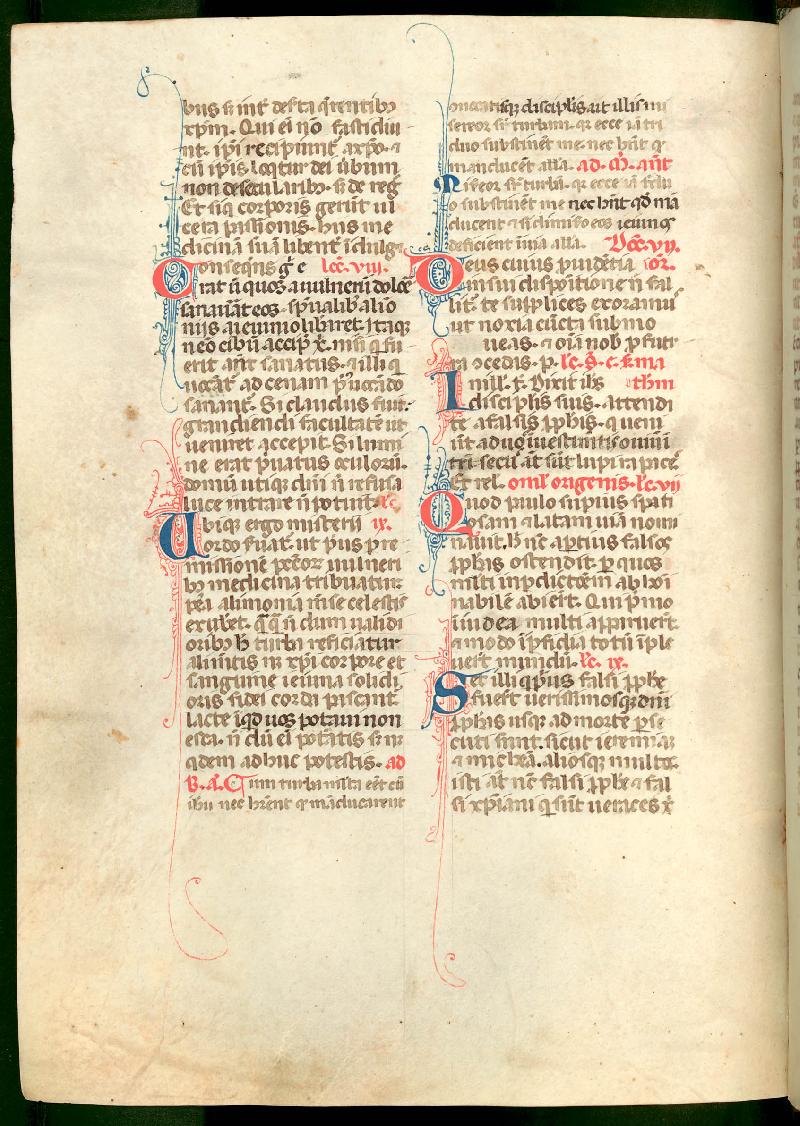 bus si int̄ deſerta q̄rentibꝫ
xp̄m. Qui ei nō faſtidiu
nt. ip̄i recipiunt̄ a xp̄o. ⁊
cū ip̄is loq̄tur dei ūbum
non de secularibꝫ. sꝫ de reḡ
Et siq corporis gerūt ul
cera paſſionis. hiis me
dicinā suā libent̄ īdulg
Conseq̄ns g̊ e lcc̄. viii.
rat ū̓ quos a vulnerū dolōe
sanauāt eos. sp̄ualibꝫ alio
niis a ieiunio libāret. Itaqꝫ
nēo cibū accip̄ x̄. nisi q̄ fu
erit ant̄ sanatus. ⁊ illi q̄
uocāt̄ ad cenam p̄us uocādo
sanant̄. Si claudus fuit.
gradiendi facultatē ut
ueniret accepit. Si lumi
ne erat p̄uatus oculoꝝ.
domū utiqꝫ dn̄i n̄ refusa
luce intrare n̄ potuit. lc̄.
Ubiqꝫ ergo misterii ix.
ordo ẜuat̄. ut p̄us p̄ re
missionē pctōꝝ uulneri
bꝫ medicina tribuatur
p̄ea alimonia mēse celestis
exubet. q̄q̄ nōdum ualidi
oribꝫ h̄ turba reficiatur
alimētis nꝫ xp̄i corpore et
sanguine ieiuna solidi
oris fidei corda pascant̄
lacte īq̄d uos potaui non
esca. n̄ dū eī pot̄atis sꝫ nc̄
q̄dem adhuc potestis. ad
B. A. Cum turba m̄lta eēt cū
ihū nec hr̄ent q̄ māducarent
ↄuocatisqꝫ disciplis ait illis mi
sereor sr̄ turbam. qꝛ ecce iā tri
duo substinēt me. nec hn̄t q̄
manducēt alla. ad. M̄. ant̄
Miseor sr̄ turbā. qꝛ ecce iā tridu
o substinēt me nec hn̄t qd̄ mā
ducent ⁊ si dimiſero eos ieiunos
deficient ī uia alla. Dōc̄. vij.
Deus cuius p̄uidētia or̄.
in sui disp̄oitione n̄ fal
lit̄. te supplices exoramu
ut noxia cūcta submo
ueas. ⁊ oīa nob̄ p̄futr
ra ↄcedas. p. lc̄. s̄. ē. s̄. ma
In ill̄. t̄. Dixit ih̄s thm
disciplis suis. attendi
te a falsis p̄phīs. q ueni
ūt ad uos ī uestimētis ouiū
ītrīsecꝰ āt sūt lupi rapaces
Et rel̄. oml̄ origenis. lc̄. vij
Quod paulo suꝑius spati
osam ⁊ latam uiā nomi
nauit. h̄ nc̄ aꝑtius falsos
p̄phīs ostendit. ꝑ quos
m̄lti ī ꝑditōem abīoi
nabilē abiēt. Qui p̄mo
ī iudea multi apparuert̄
⁊ modo ī ꝑfidia totū īple
uert̄ mundū. lc̄. ix.
Set illi q̄ p̄us falsi p̄phe
fuert̄ uerissimosqꝫ dn̄i
p̄phīs usqꝫ ad mortē ꝑse
cuti sunt. sicut ieremiā
⁊ micheā. aliosqꝫ multos.
isti āt nc̄ falsi p̄phe ⁊ fal
si xp̄iani q̄ sūt ueraces x̄